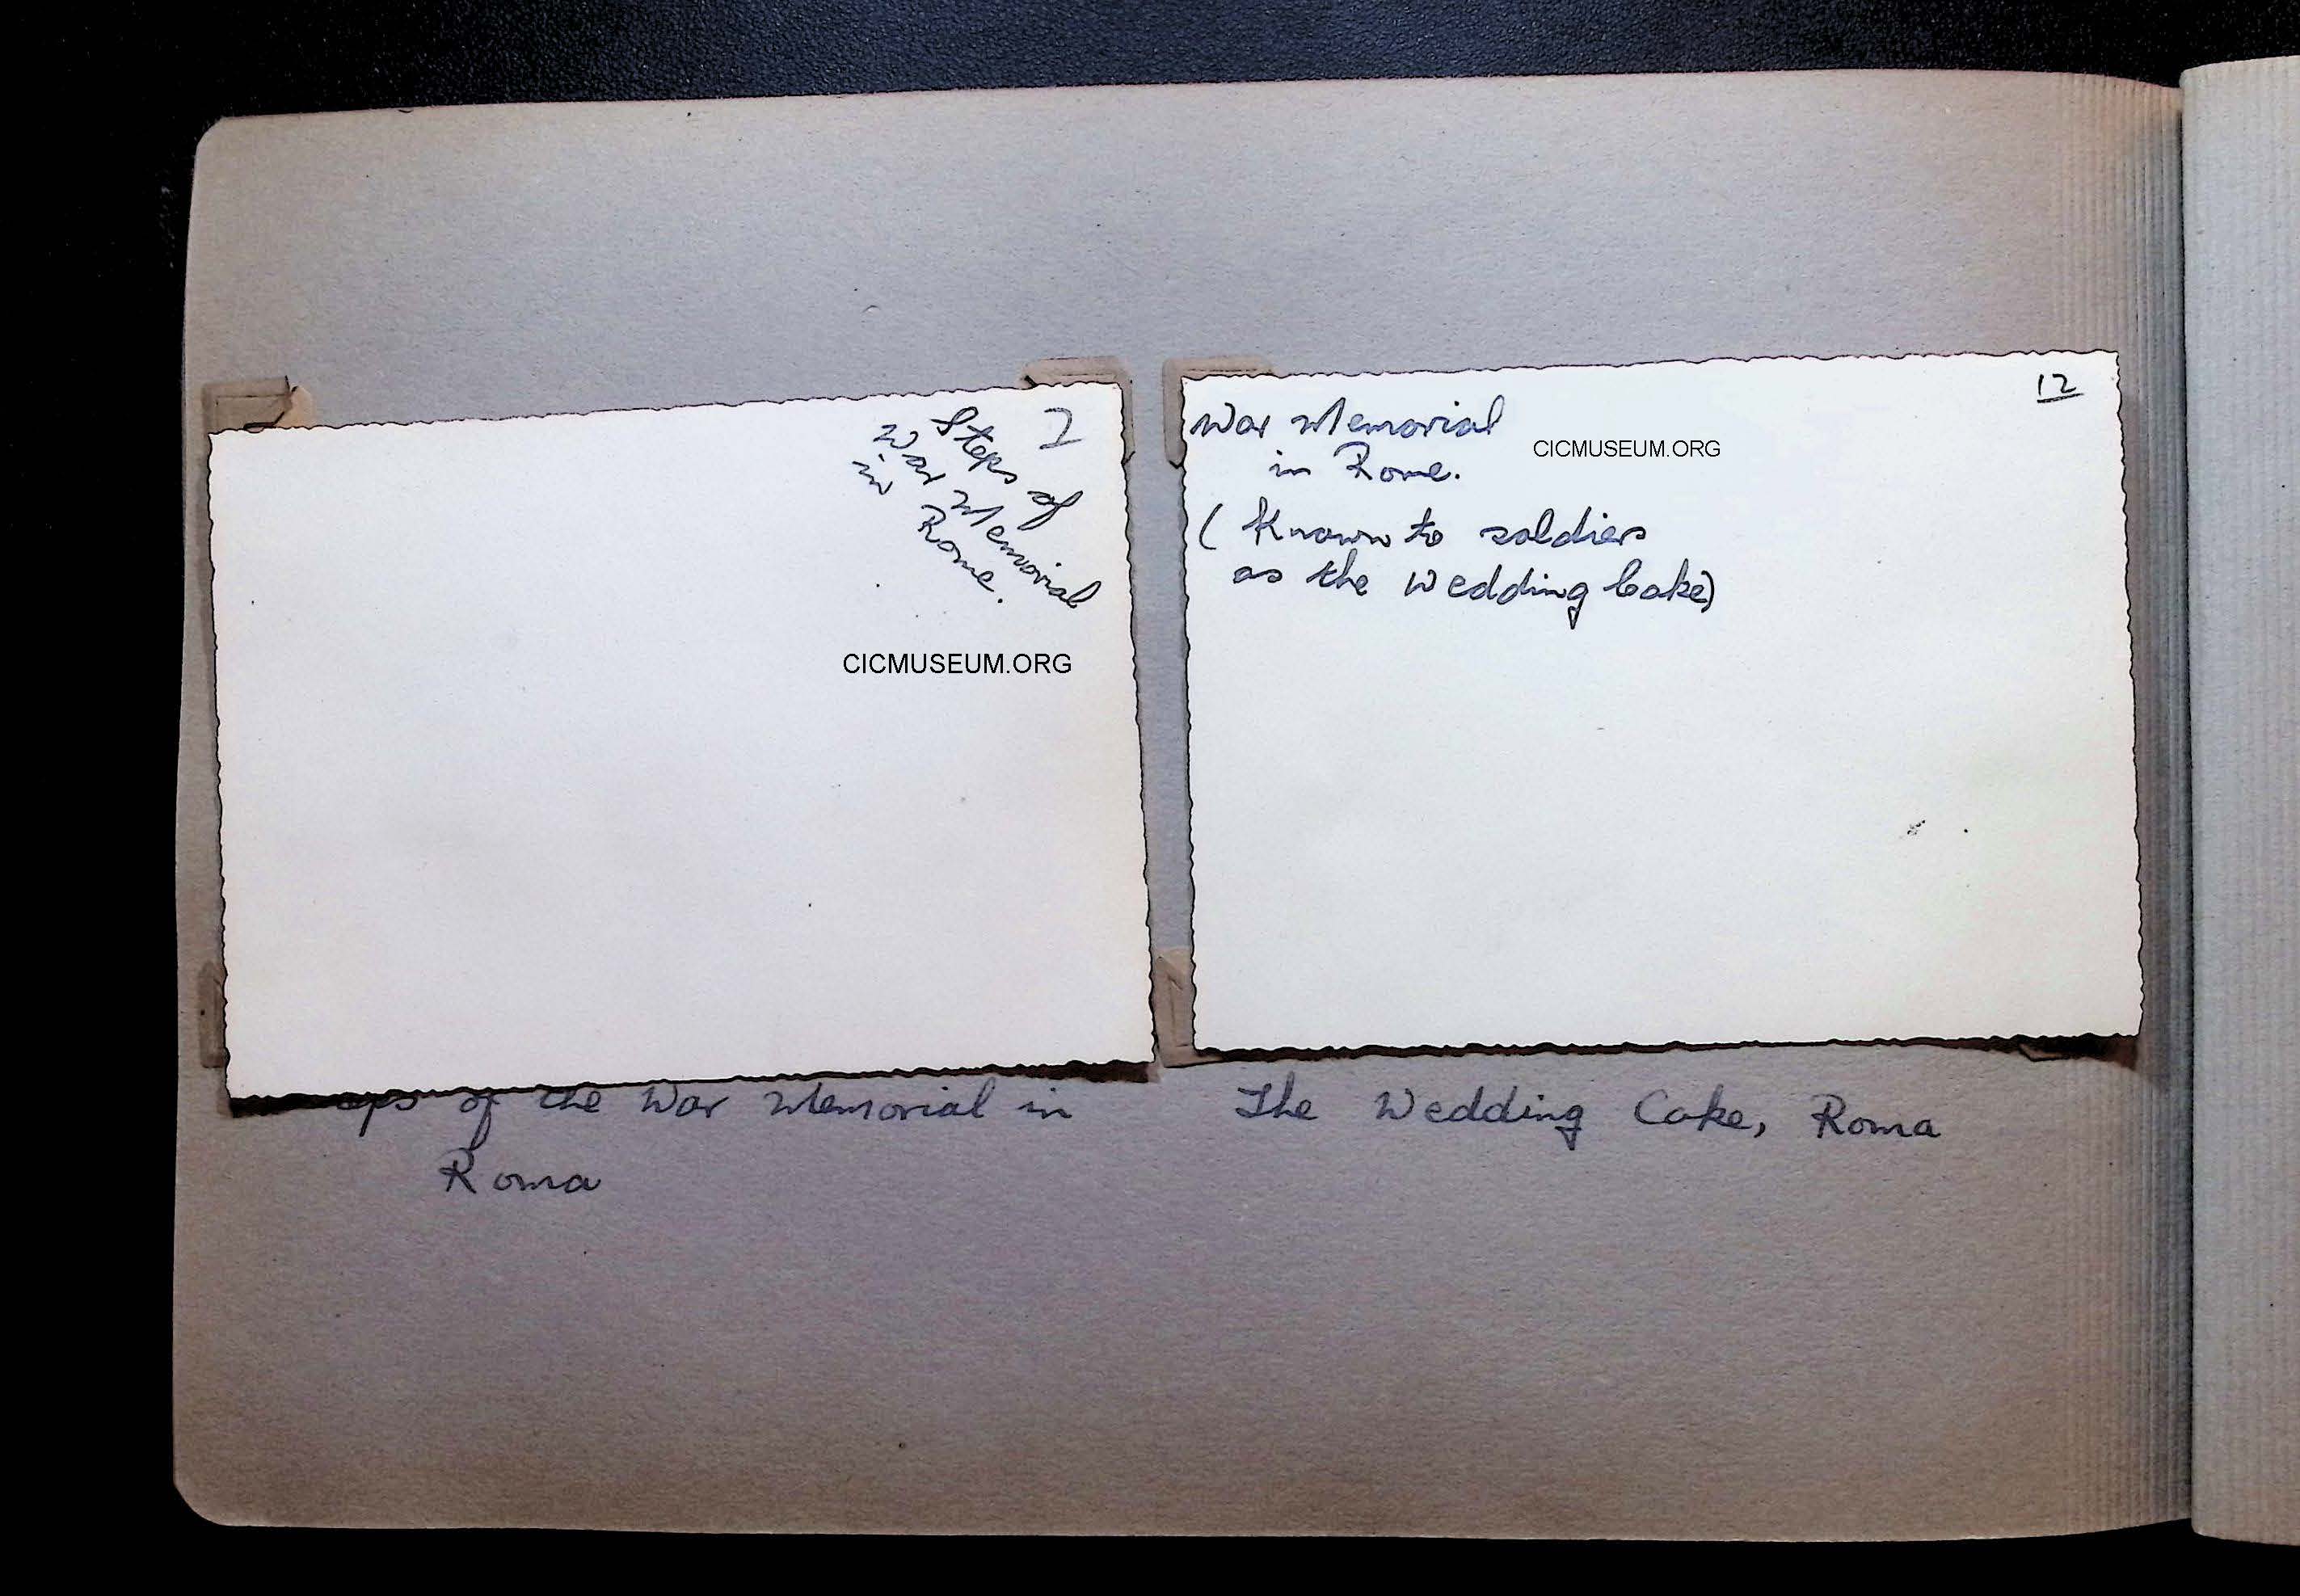 Steps of
War Memorial
in Rome.
CICMUSEUM.ORG
12
War Memorial
in Rome.
CICMUSEUM.ORG
(Known to soldiers
as the Wedding Cake)
eps of the War Memorial in
Roma
The Wedding Cake, Roma